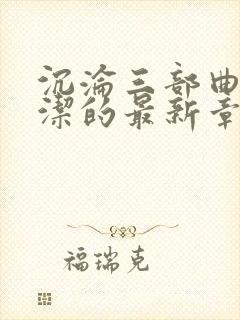 沉淪三部曲
潔的最新章
福瑞克